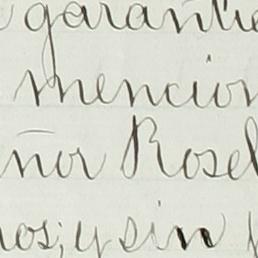 garantie
mencion
ñor Rosel
nos; y sin